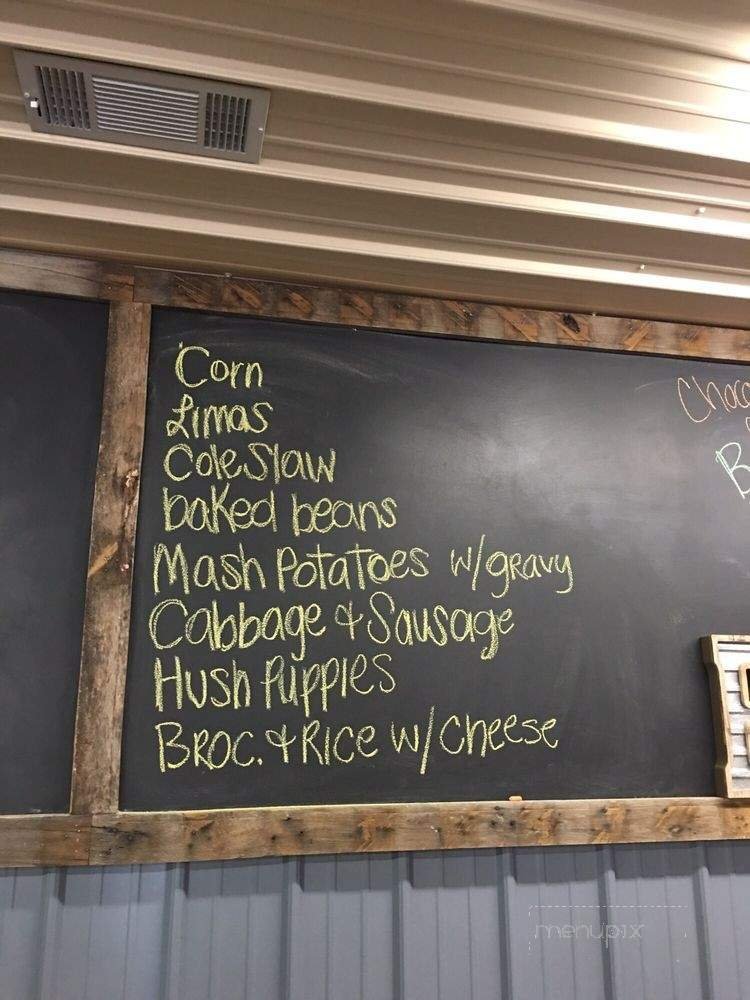 Corn
Limas
Cole Slaw
baked beans
Mash Potatoes w/gravy
Cabbage & Sausage
Hush Puppies
Broc. & Rice w/ Cheese
menupix